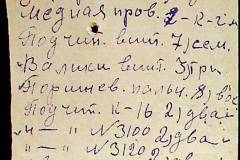 Медная пров. 2-К-2/м
Подшип. вшт. 7) сем.
Валики вшт. 3) три.
Поршнев. пальц. 8) вос
Подшип. К-16 2) два
" — " N3100 2) два
" — " N3120 2) два